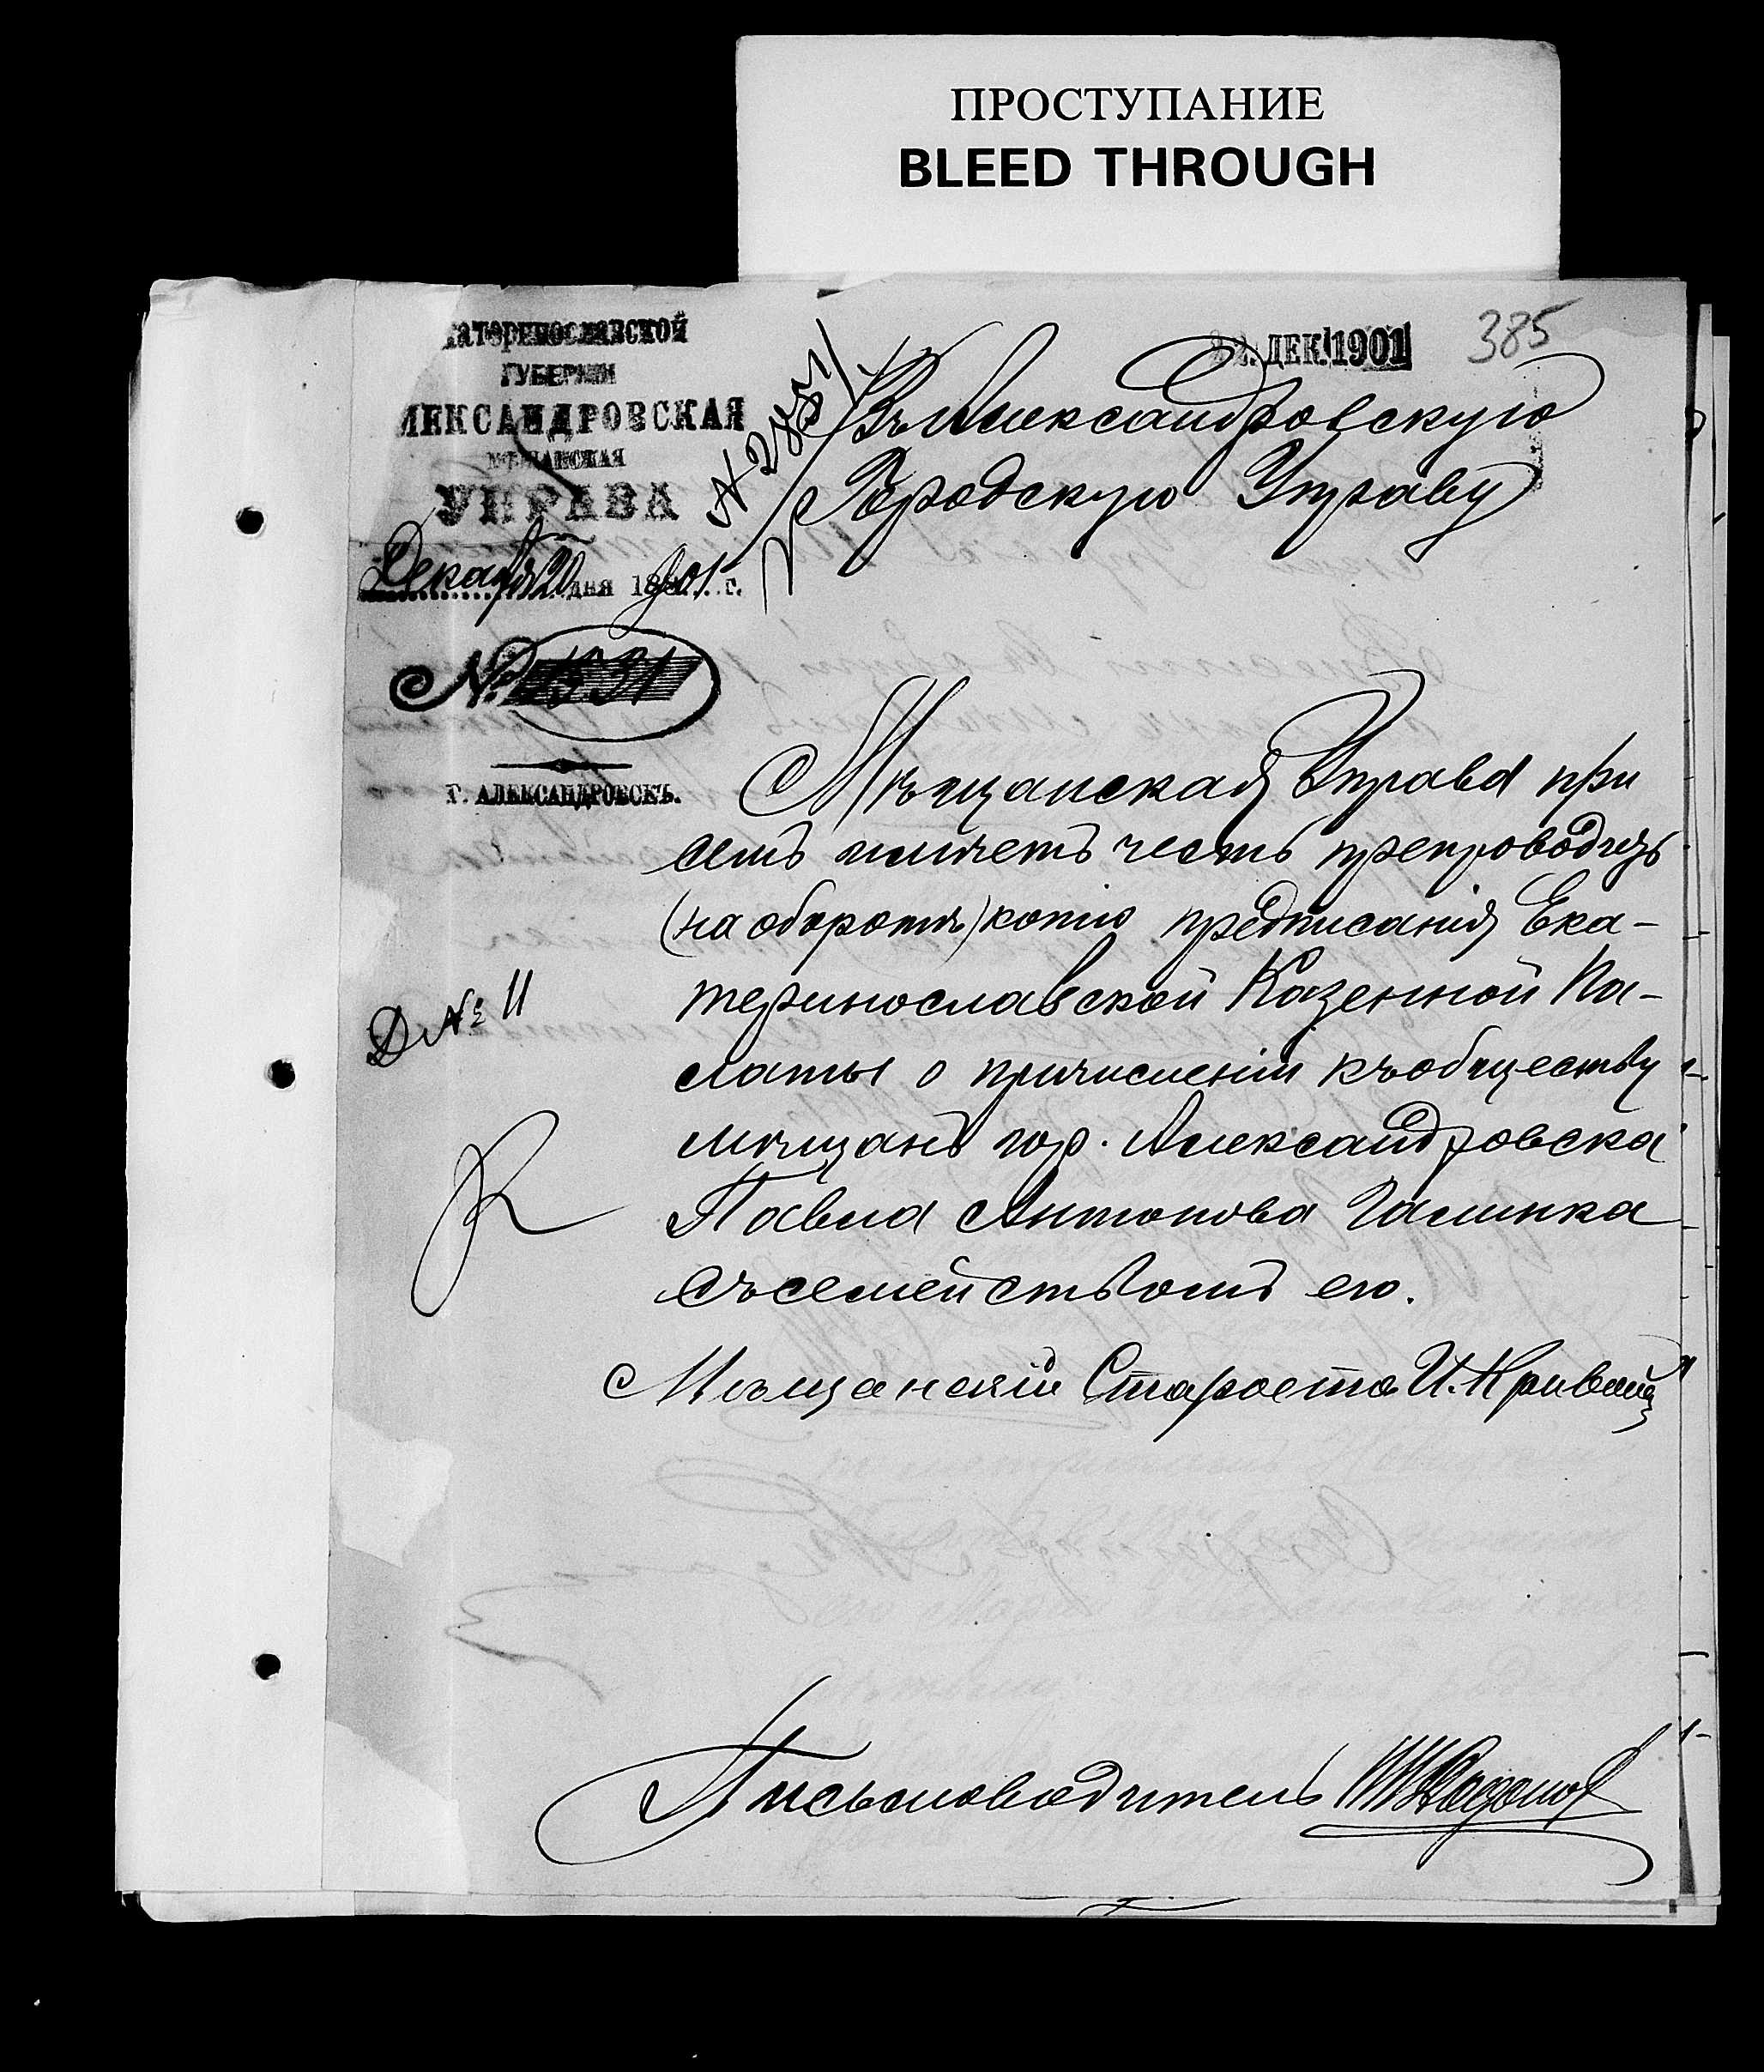 ПРОСТУПАНИЕ
BLEED THROUGH
катеринославской
ГУБЕРНІИ
ЛЕКСАНДРОВСКАЯ
МѢЩАНСКАЯ
УПРАВА
Декабря 20 дня 1901 г.
№ 1331
Г. АЛЕКСАНДРОВСКЪ.
ДЕК. 1901
385
Въ Александровскую
Городскую Управу
Мѣщанская Управа при
семъ имѣетъ честь препроводить
(на оборотѣ) копію предписанія Ека-
теринославской Казенной Па-
латы о причисленіи къ обществу
мѣщанъ гор. Александровска
Павла Антонова Галинка
съ семействомъ его.
Д № 11
Мѣщанскій Староста И.
Письмоводитель